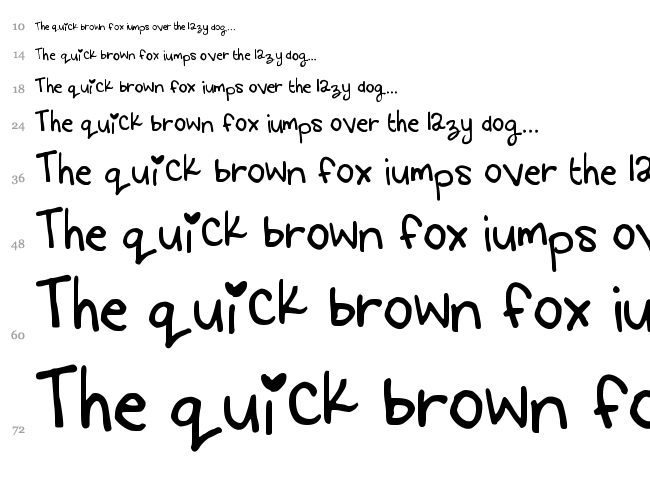 10 The quick brown fox iumps over the lazy dog....
14 The quick brown fox iumps over the lazy dog...
18 The quick brown fox iumps over the lazy dog...
24 The quick brown fox iumps over the lazy dog...
36 The quick brown fox iumps over the la
48 The quick brown fox iumps ov
60 The quick brown fox iu
72 The quick brown fo